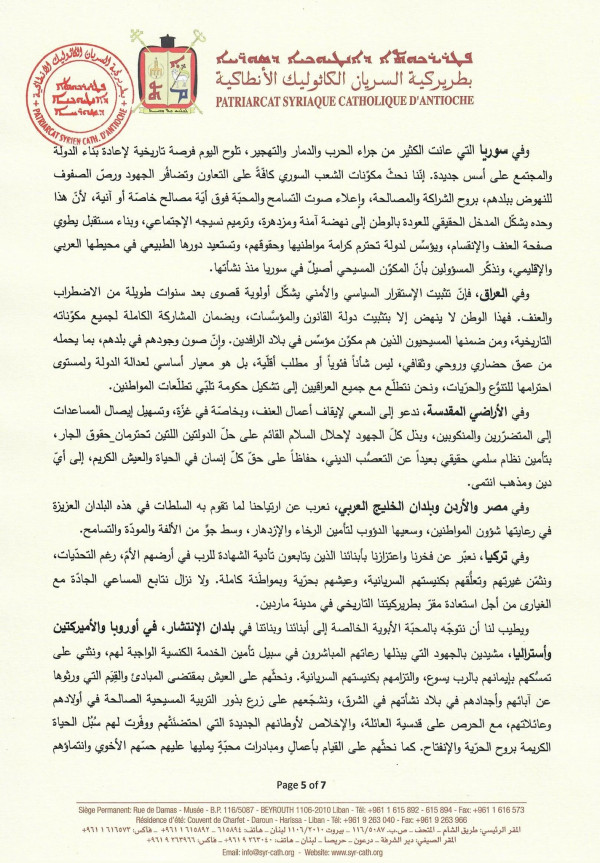 بطريركية السريان الكاثوليك الأنطاكية
PATRIARCAT SYRIAQUE CATHOLIQUE D'ANTIOCHE
بطريركية السريان الكاثوليك الأنطاكية
PATRIARCAT SYRIEN CATH. D'ANTIOCHE
وفي سوريا التي عانت الكثير من جراء الحرب والدمار والتهجير، تلوح اليوم فرصة تاريخية لإعادة بناء الدولة
والمجتمع على أسس جديدة. إننا نحثّ مكوّنات الشعب السوري كافّةً على التعاون وتضافُر الجهود ورصّ الصفوف
للنهوض ببلدهم، بروح الشراكة والمصالحة، وإعلاء صوت التسامح والمحبّة فوق أيّة مصالح خاصّة أو آنية، لأنّ هذا
وحده يشكّل المدخل الحقيقي للعودة بالوطن إلى نهضة آمنة ومزدهرة، وترميم نسيجه الإجتماعي، وبناء مستقبل يطوي
صفحة العنف والإنقسام، ويؤسّس لدولة تحترم كرامة مواطنيها وحقوقهم، وتستعيد دورها الطبيعي في محيطها العربي
والإقليمي، ونذكّر المسؤولين بأنّ المكوّن المسيحي أصيلٌ في سوريا منذ نشأتها.
وفي العراق، فإنّ تثبيت الإستقرار السياسي والأمني يشكّل أولوية قصوى بعد سنوات طويلة من الاضطراب
والعنف. فهذا الوطن لا ينهض إلا بتثبيت دولة القانون والمؤسّسات، وبضمان المشاركة الكاملة لجميع مكوّناته
التاريخية، ومن ضمنها المسيحيون الذين هم مكوّن مؤسّس في بلاد الرافدين. وإنّ صون وجودهم في بلدهم، بما يحمله
من عمق حضاري وروحي وثقافي، ليس شأناً فئوياً أو مطلب أقلّية، بل هو معيار أساسي لعدالة الدولة ولمستوى
احترامها للتنوُّع والحرّيات، ونحن نتطلّع مع جميع العراقيين إلى تشكيل حكومة تلبّي تطلّعات المواطنين.
وفي الأراضي المقدسة، ندعو إلى السعي لإيقاف أعمال العنف، وبخاصّة في غزّة، وتسهيل إيصال المساعدات
إلى المتضرّرين والمنكوبين، وبذل كلّ الجهود لإحلال السلام القائم على حلّ الدولتين اللتين تحترمان حقوق الجار،
بتأمين نظام سلمي حقيقي بعيداً عن التعصُّب الديني، حفاظاً على حقّ كلّ إنسان في الحياة والعيش الكريم، إلى أيّ
دين ومذهب انتمى.
وفي مصر والأردن وبلدان الخليج العربي، نعرب عن ارتياحنا لما تقوم به السلطات في هذه البلدان العزيزة
في رعايتها شؤون المواطنين، وسعيها الدؤوب لتأمين الرخاء والإزدهار، وسط جوٍّ من الألفة والمودّة والتسامح.
وفي تركيا، نعبّر عن فخرنا واعتزازنا بأبنائنا الذين يتابعون تأدية الشهادة للرب في أرضهم الأمّ، رغم التحدّيات،
ونثمّن غيرتهم وتعلُّقهم بكنيستهم السريانية، وعيشهم بحرّية وبمواطَنة كاملة. ولا نزال نتابع المساعي الجادّة مع
الغيارى من أجل استعادة مقرّ بطريركيتنا التاريخي في مدينة ماردين.
ويطيب لنا أن نتوجّه بالمحبّة الأبوية الخالصة إلى أبنائنا وبناتنا في بلدان الإنتشار، في أوروبا والأميركتين
وأستراليا، مشيدين بالجهود التي يبذلها رعاتهم المباشرون في سبيل تأمين الخدمة الكنسية الواجبة لهم، ونثني على
تمسّكهم بإيمانهم بالرب يسوع، والتزامهم بكنيستهم السريانية. ونحثّهم على العيش بمقتضى المبادئ والقِيَم التي ورثوها
عن آبائهم وأجدادهم في بلاد نشأتهم في الشرق، ونشجّعهم على زرع بذور التربية المسيحية الصالحة في أولادهم
وعائلاتهم، مع الحرص على قدسية العائلة، والإخلاص لأوطانهم الجديدة التي احتضنَتْهم ووفّرت لهم سُبُل الحياة
الكريمة بروح الحرّية والإنفتاح. كما نحثّهم على القيام بأعمالٍ ومبادرات محبّةٍ يمليها عليهم حسّهم الأخوي وانتماؤهم
Page 5 of 7
Siège Permanent: Rue de Damas - Musée - B.P. 116/5087 - BEYROUTH 1106-2010 Liban - Tél: +961 1 615 892 - 615 894 - Fax: +961 1 616 573
Résidence d'été: Couvent de Charfet - Daroun - Harissa - Liban - Tél: +961 9 263 040 - Fax: +961 9 263 966
المقر الرئيسي: طريق الشام - المتحف - ص.ب. ١١٦/٥٠٨٧ - بيروت ١١٠٦/٢٠١٠ لبنان - هاتف: ٦١٥٨٩٤ - ٦١٥٨٩٢ ١ ٩٦١+ - فاكس: ٦١٦٥٧٣ ١ ٩٦١+
المقر الصيفي: دير الشرفة - درعون - حريصا - لبنان - هاتف: ٢٦٣٠٤٠ ٩ ٩٦١+ - فاكس: ٢٦٣٩٦٦ ٩ ٩٦١+
Email: info@syr-cath.org - Website: www.syr-cath.org